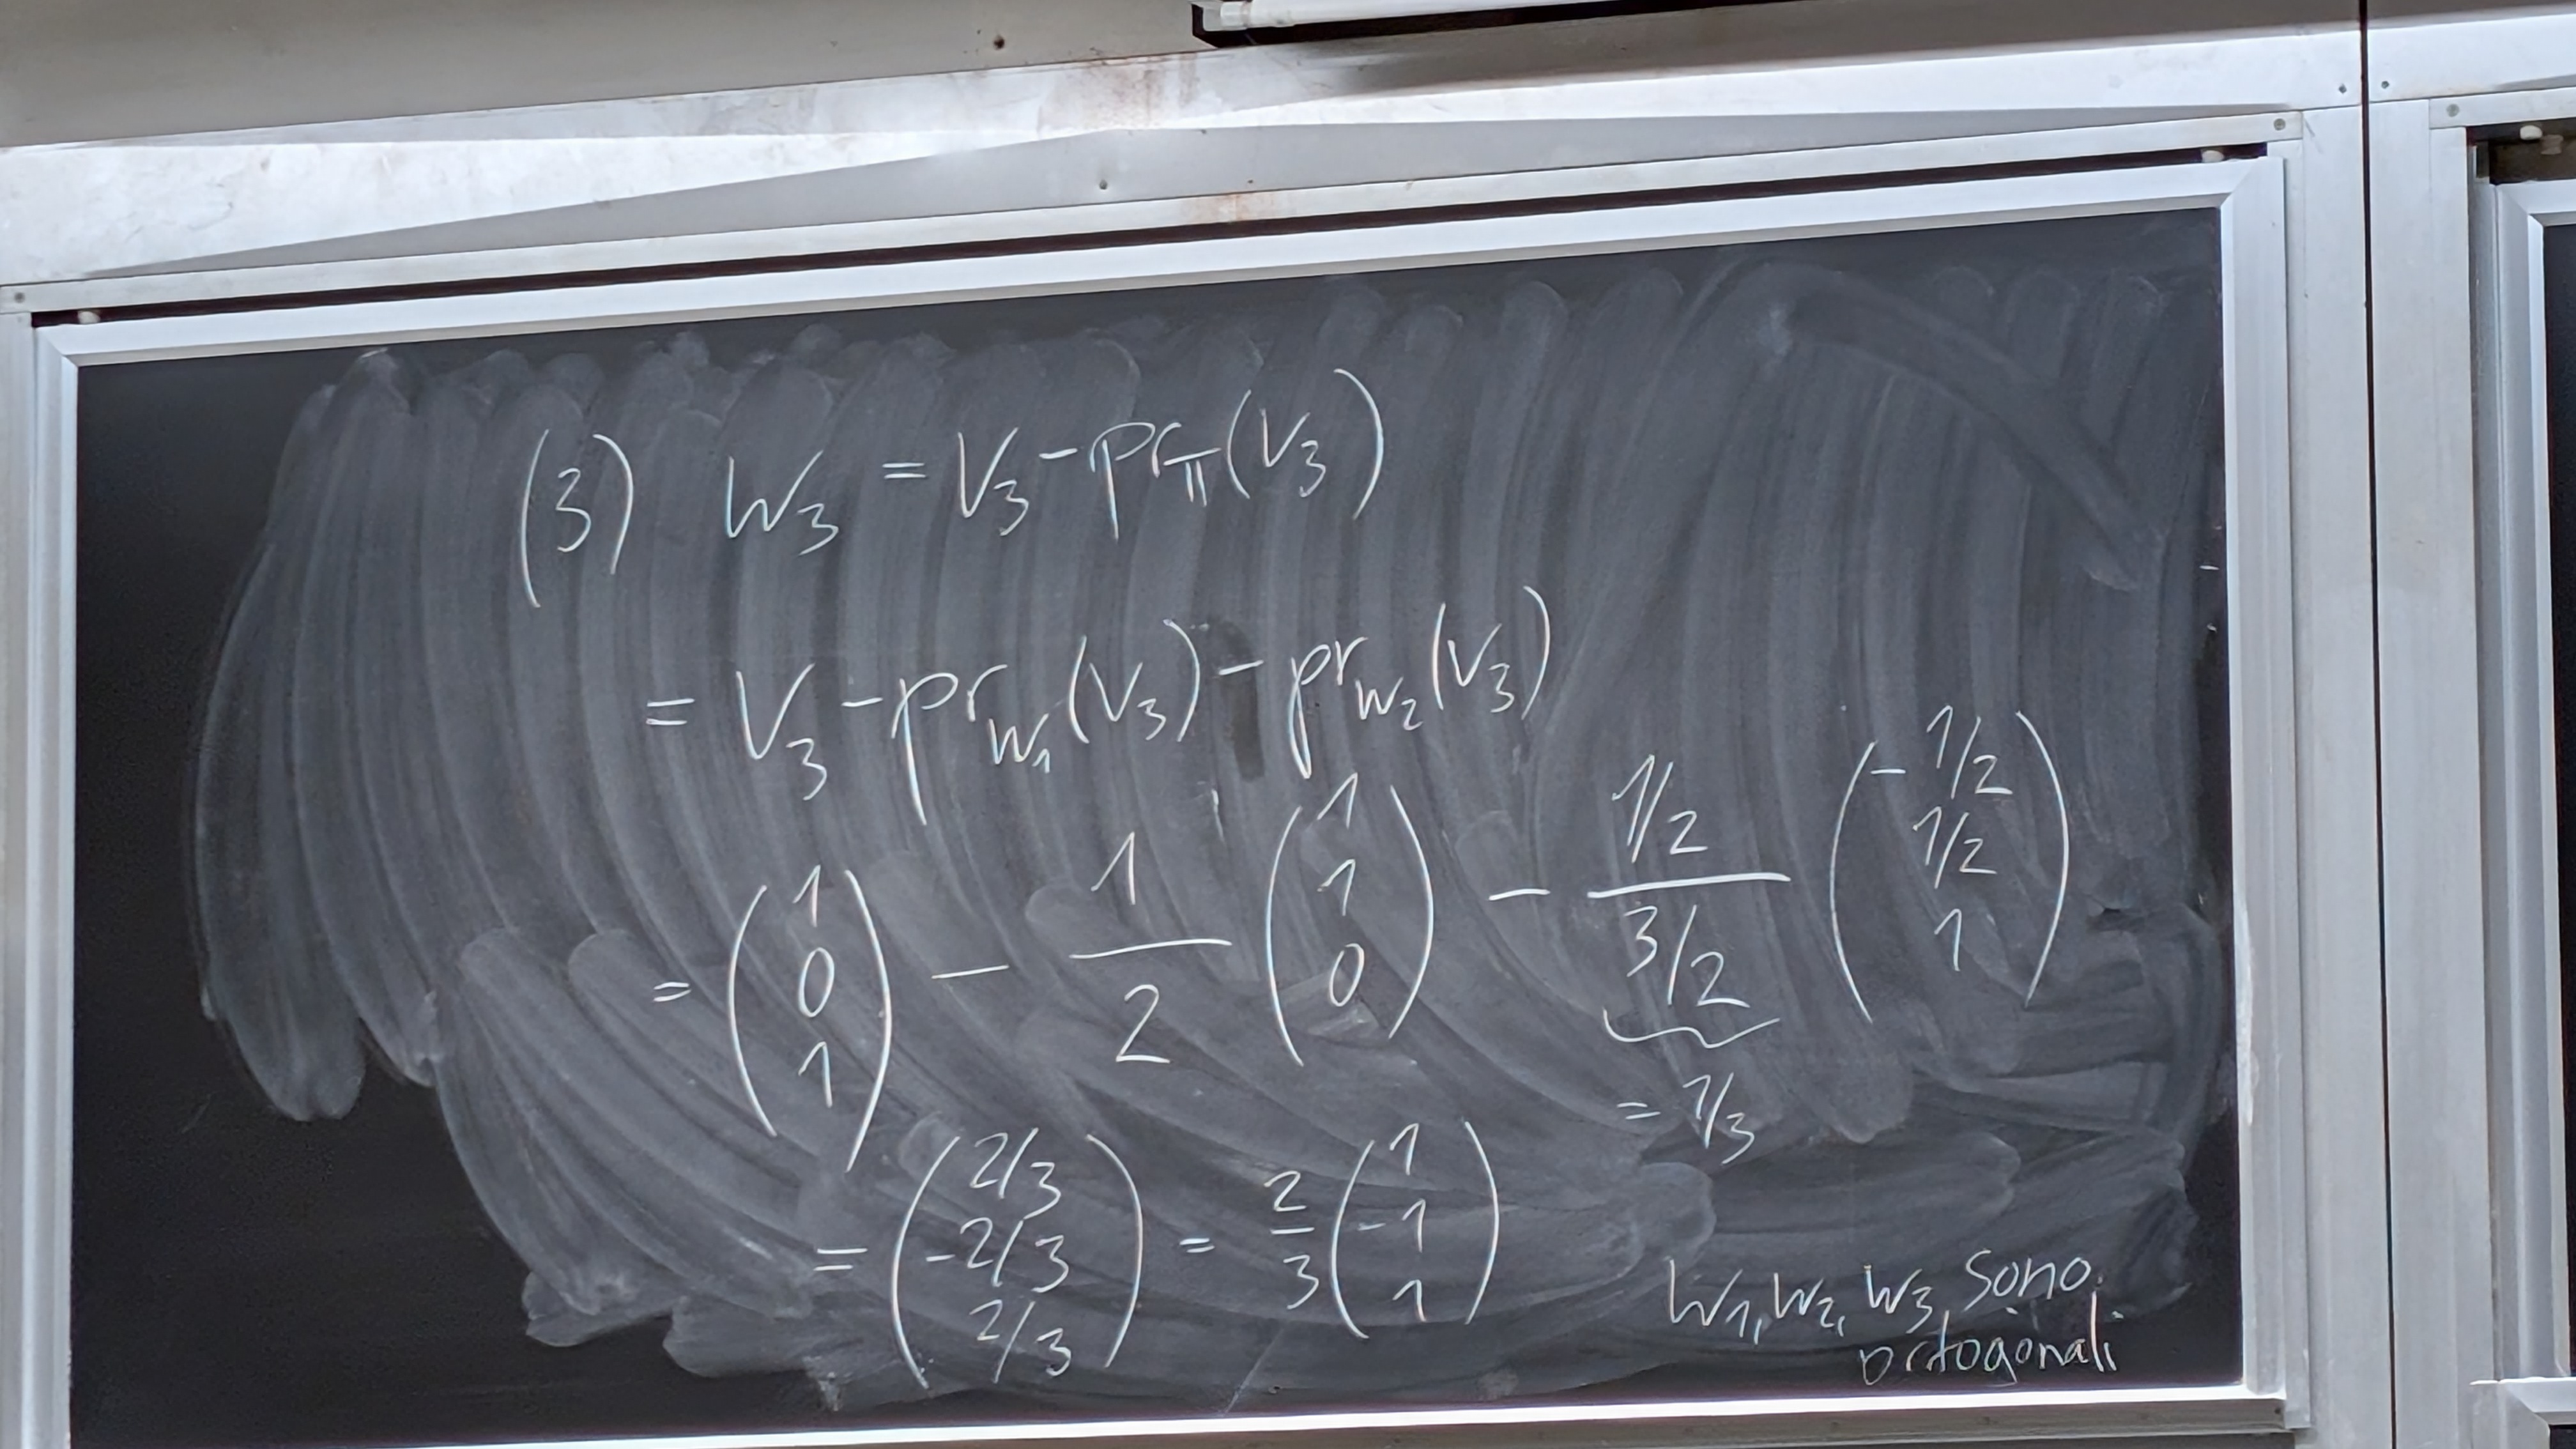 (3) w₃ = v₃ - pr_π(v₃)
= v₃ - pr_w₁(v₃) - pr_w₂(v₃)
= (1 0 1) - 1/2 (1 1 0) - (1/2)/(3/2) (-1/2 1/2 1)
= 1/3
= (2/3 -2/3 2/3) = 2/3 (1 -1 1)
w₁, w₂, w₃ sono
ortogonali